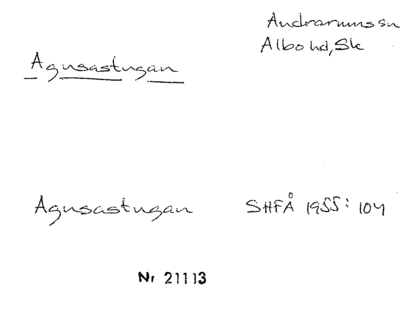 Andrarums sn
Albo hd, Sk
Agusastugan
Agusastugan SHFÅ 1955: 104
Nr 21113